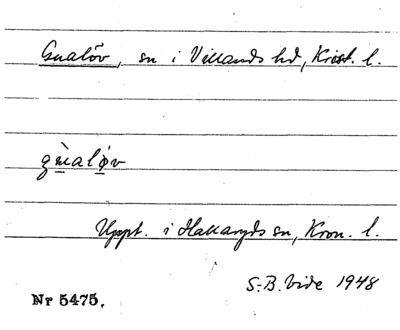 Gualöv, sn i Villands hd, Krist. l.
gu̠̇̀alǿ̠v
Uppt. i Hallaryds sn, Kron. l.
S.-B. Vide 1948
Nr 5475.